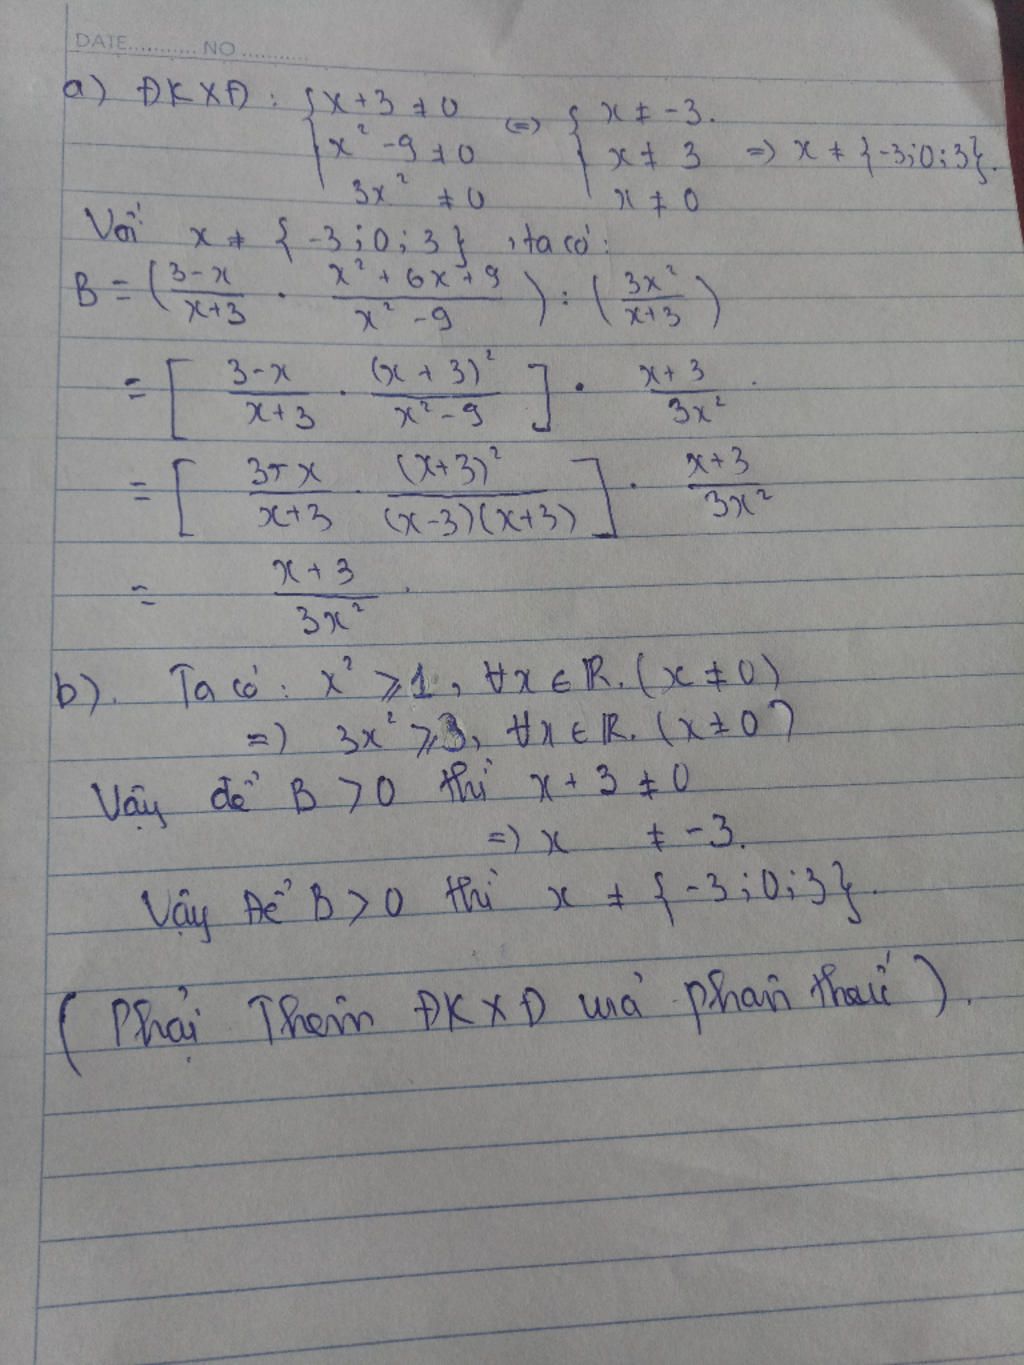 DATE............ NO ............
a) ĐKXĐ: { x + 3 ≠ 0 ; x² - 9 ≠ 0 ; 3x² ≠ 0 <=> { x ≠ -3. ; x ≠ 3 ; x ≠ 0 => x ≠ {-3;0;3}.
Với x ≠ {-3;0;3}, ta có:
B = ( (3-x)/(x+3) . (x² + 6x + 9)/(x² - 9) ) : ( 3x²/(x+3) )
= [ (3-x)/(x+3) . (x+3)²/(x² - 9) ] . (x+3)/(3x²) .
= [ (3-x)/(x+3) . (x+3)²/((x-3)(x+3)) ] . (x+3)/(3x²)
= (x+3)/(3x²) .
b). Ta có: x² ⩾ 1, ∀x ∈ R. (x ≠ 0)
=> 3x² ⩾ 3, ∀x ∈ R. (x ≠ 0)
Vậy để B > 0 thì x + 3 ≠ 0
=> x ≠ -3.
Vậy Để B > 0 thì x ≠ {-3;0;3}.
(Phải Thêm ĐKXĐ phân thức).